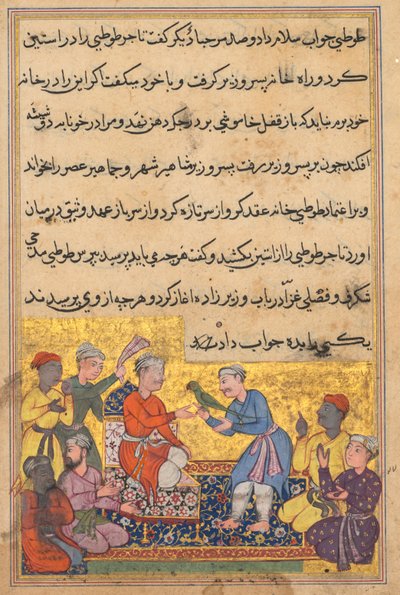 طوطی جواب سلام داد و صد مرحبا دیگر گفت تاجر طوطی را در استین
کرد و راه خانه پسر وزیر گرفت و با خود میگفت اکر این را در خانه
خود برم نباید که باز قفل خاموشی بر در جکر دهن نهد و مرا در خونابه
افکند چون بر پسر وزیر رفت پسر وزیر مشاهیر شهر و جماهیر عصر را خواند
و بر اعتماد طوطی خانه عقد کرو از سر تازه کرد و از سر باز عهد وثیق در میان
اورد تاجر طوطی را از استین بکشید و گفت هر چه می باید پرسید بپرس طوطی
شکرف و فصلی غرا در باب وزیر زاده اغاز کرد و هر چه از وی پرسیدند
یکی را بده جواب داد